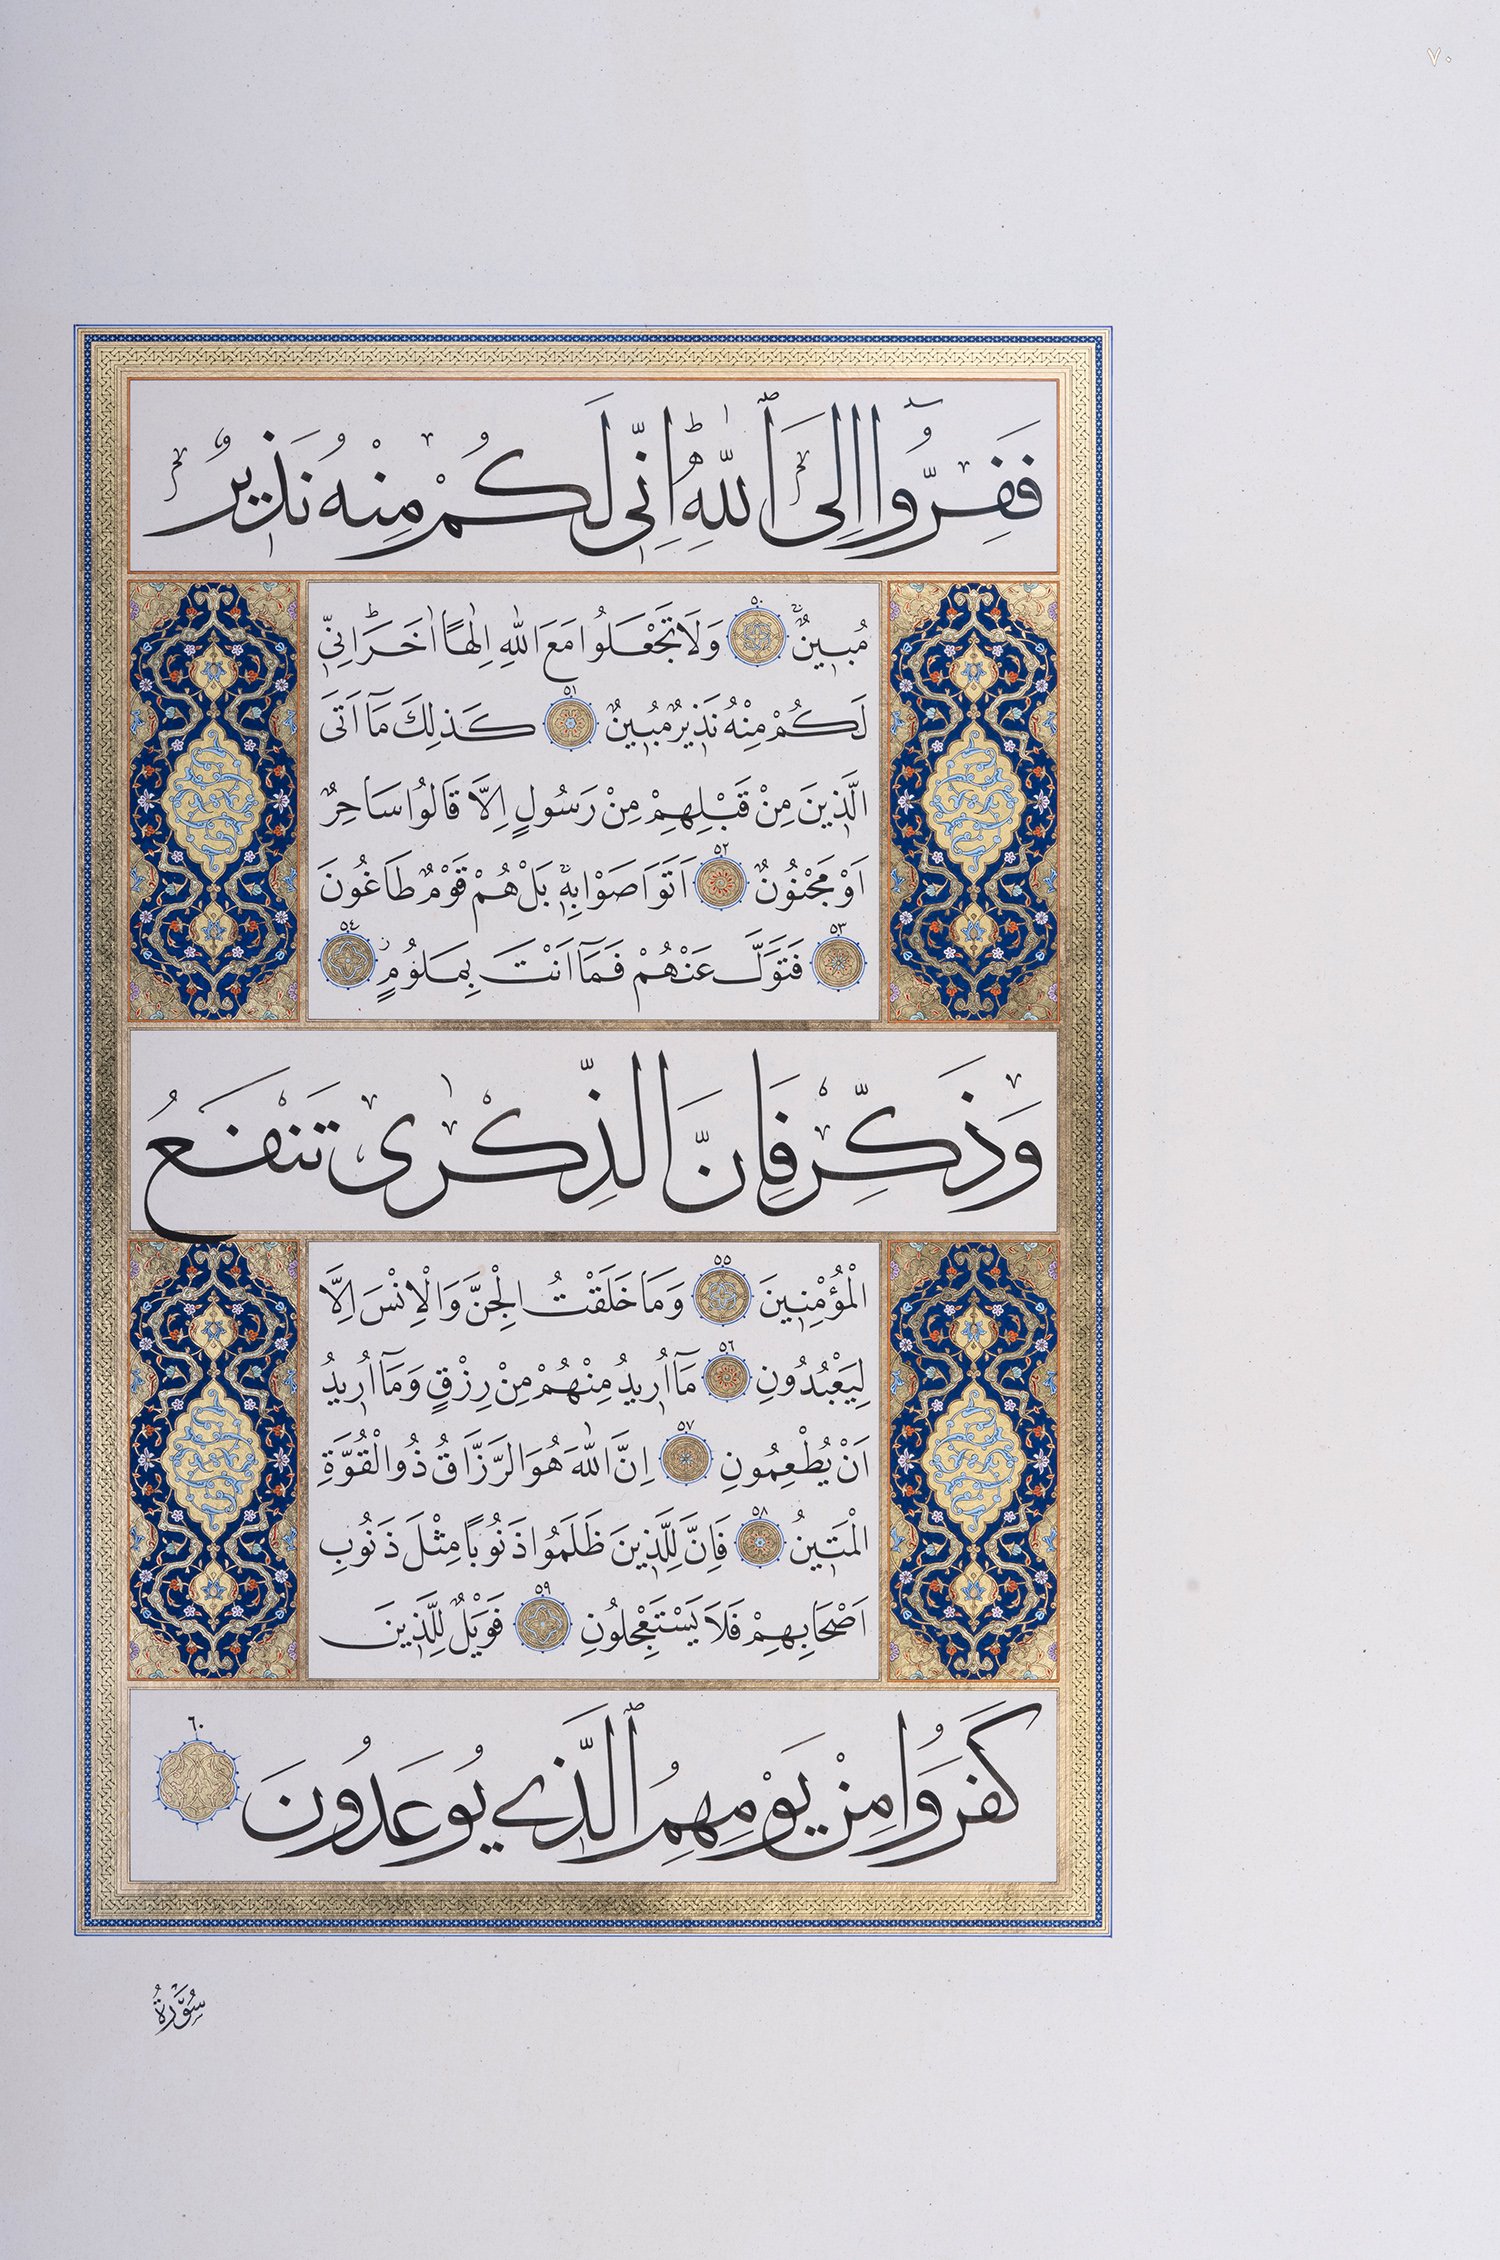 ٧٠
فَفِرُّٓوا اِلَى ٱللّٰهِؕ اِنّ۪ي لَكُمْ مِنْهُ نَذ۪يرٌ
مُب۪ينٌۚ ٥٠ وَلَا تَجْعَلُوا مَعَ اللّٰهِ اِلٰهًا اٰخَرَؕ اِنّ۪ي
لَكُمْ مِنْهُ نَذ۪يرٌ مُب۪ينٌ ٥١ كَذٰلِكَ مَٓا اَتَى
الَّذ۪ينَ مِنْ قَبْلِهِمْ مِنْ رَسُولٍ اِلَّا قَالُوا سَاحِرٌ
اَوْ مَجْنُونٌ ٥٢ اَتَوَاصَوْا بِه۪ۚ بَلْ هُمْ قَوْمٌ طَاغُونَ
٥٣ فَتَوَلَّ عَنْهُمْ فَمَٓا اَنْتَ بِمَلُومٍؗ ٥٤
وَذَكِّرْ فَاِنَّ الذِّكْرٰى تَنْفَعُ
الْمُؤْمِن۪ينَ ٥٥ وَمَا خَلَقْتُ الْجِنَّ وَالْاِنْسَ اِلَّا
لِيَعْبُدُونِ ٥٦ مَٓا اُر۪يدُ مِنْهُمْ مِنْ رِزْقٍ وَمَٓا اُر۪يدُ
اَنْ يُطْعِمُونِ ٥٧ اِنَّ اللّٰهَ هُوَ الرَّزَّاقُ ذُو الْقُوَّةِ
الْمَت۪ينُ ٥٨ فَاِنَّ لِلَّذ۪ينَ ظَلَمُوا ذَنُوبًا مِثْلَ ذَنُوبِ
اَصْحَابِهِمْ فَلَا يَسْتَعْجِلُونِ ٥٩ فَوَيْلٌ لِلَّذ۪ينَ
كَفَرُوا مِنْ يَوْمِهِمُ ٱلَّذ۪ي يُوعَدُونَ ٦٠
سُوَرْةُ